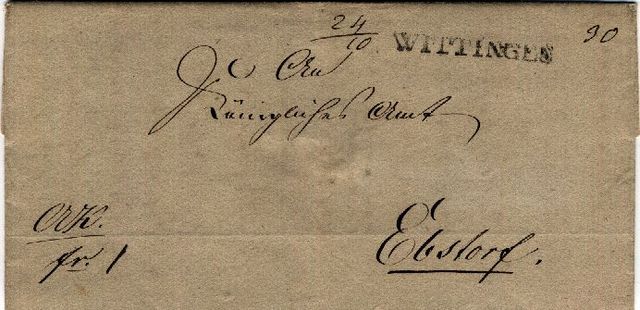 24/10 WITTINGEN 30
An
Königliches Amt
Ebstorf.
fr. 1